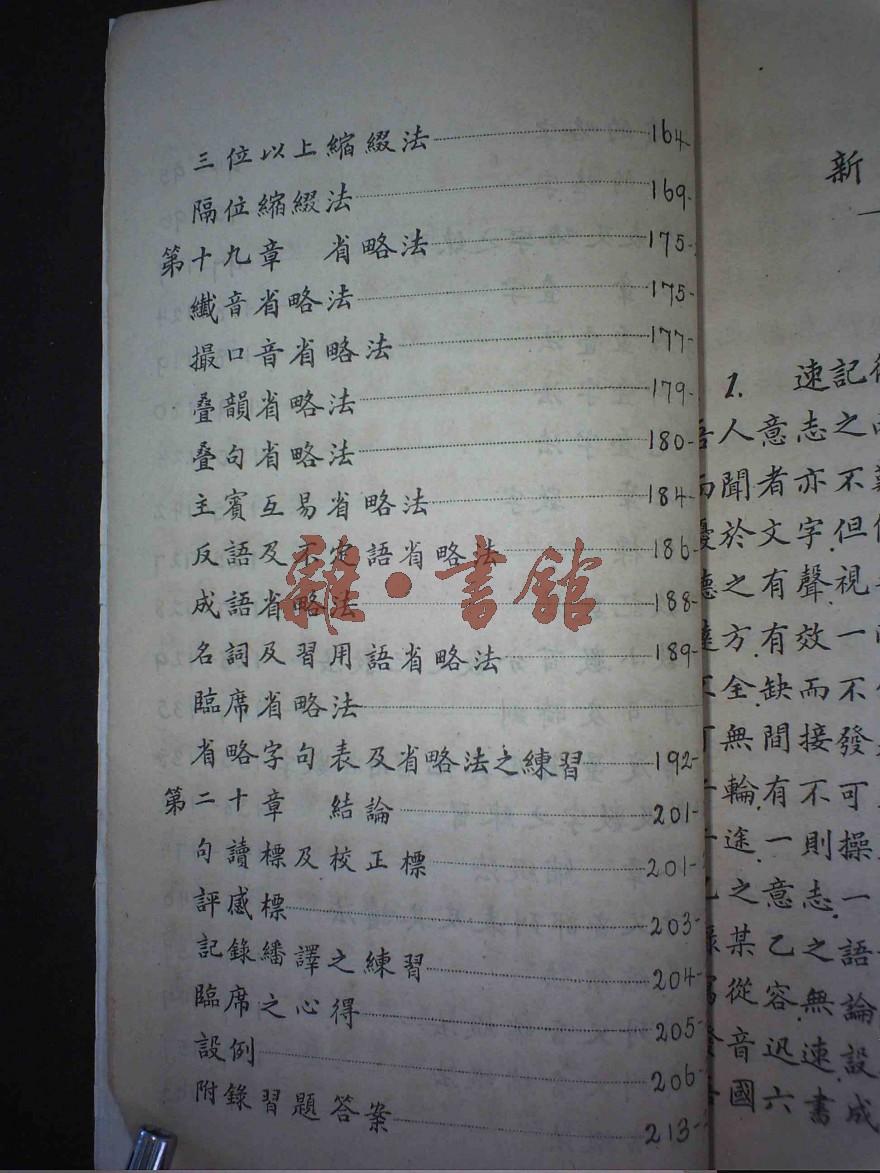 三位以上縮綴法 164
隔位縮綴法 169
第十九章 省略法 175
纖音省略法 175
撮口音省略法 177
叠韻省略法 179
叠句省略法 180
主賓互易省略法 184
反語及不定語省略法 186
成語省略法 188
名詞及習用語省略法 189
臨席省略法
省略字句表及省略法之練習 192
第二十章 結論 201
句讀標及校正標 201
評感標 203
記錄繙譯之練習 204
臨席之心得 205
設例 206
附錄習題答案 213
雜·書館
新
1. 速記
人意志之
聞者亦不
於文字.但
之有聲.視
方.有效一
全.缺而不
無間接發
輪.有不可
途.一則操
之意志.一
某乙之語
從容.無論
音迅速.設
國六書成